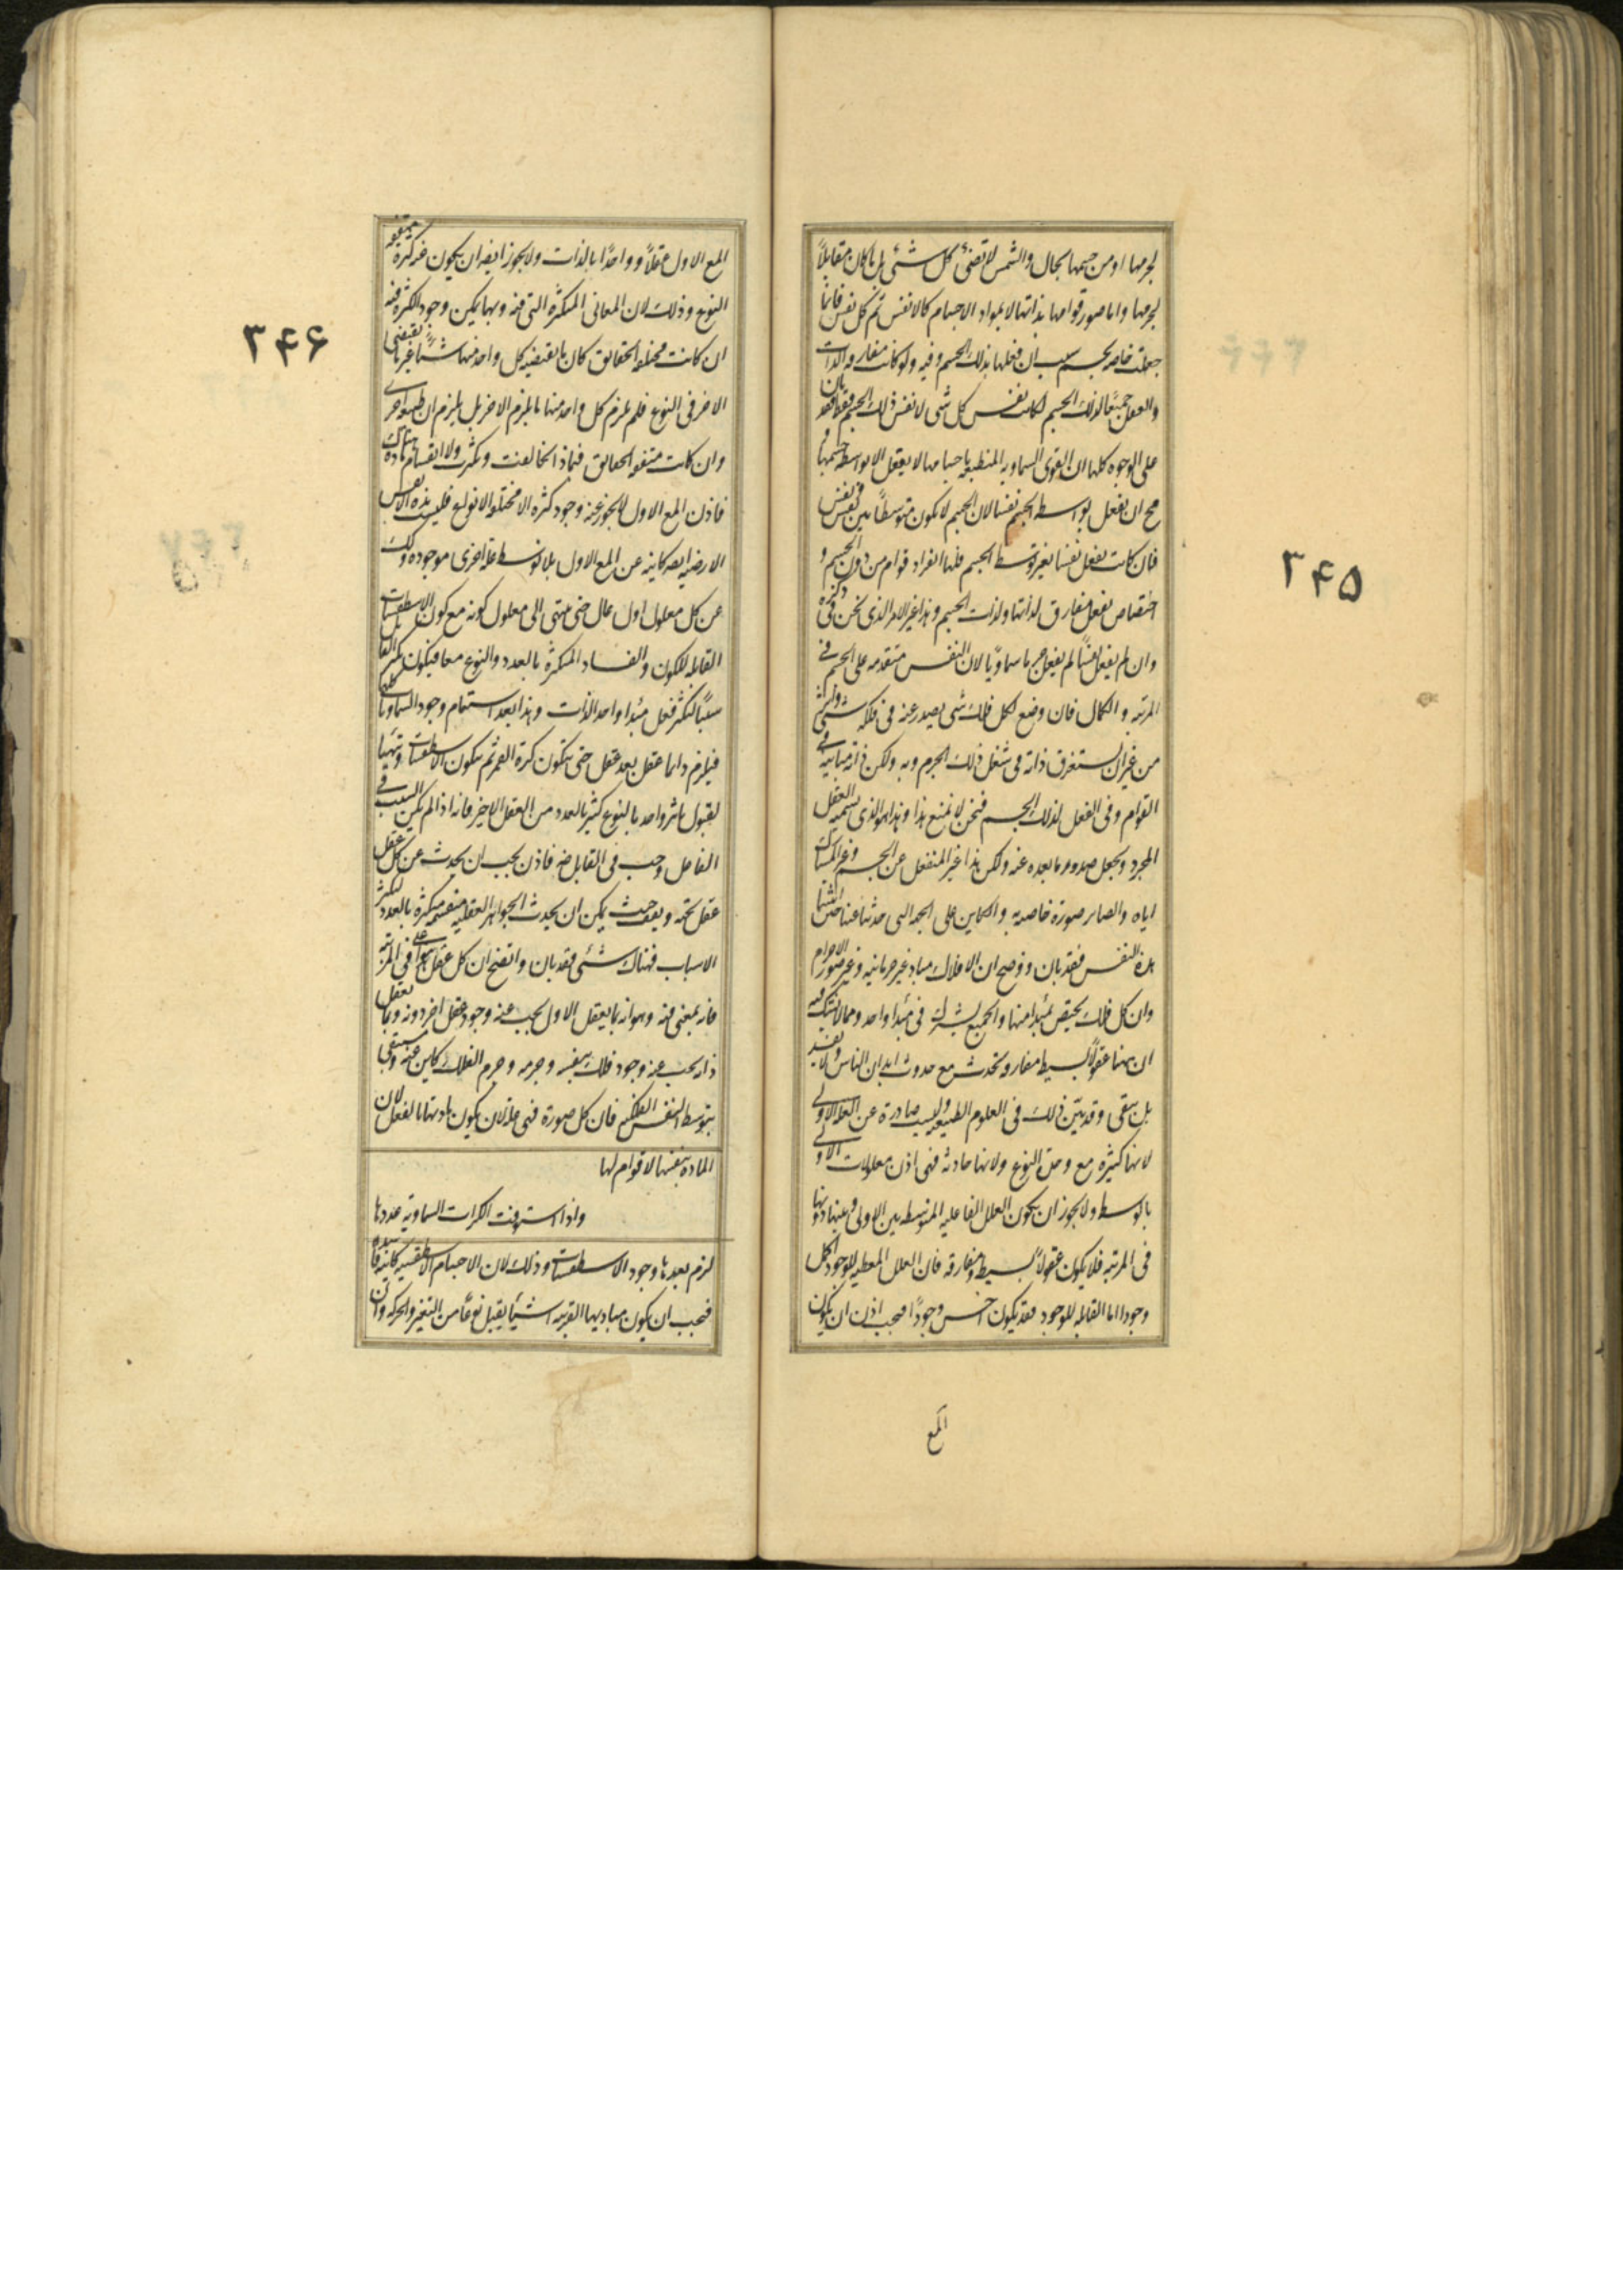 لجرمها او من جسمها بحال والشمس لا تضئ كل شئ بل ما كان مقابلاً
لجرمها واما صور قوامها بذاتها لا بمواد الاجسام كالانفس ثم كل نفس فانما
جعلت خاصه بجسم بسبب ان فعلها بذلك الجسم وفيه ولو كانت مفارقه الذات
والفعل جميعاً لذلك الجسم لكانت نفس كل شى لا نفس ذلك الجسم فقط فقد بان
على الوجوه كلها ان القوى السماويه المنطبعه باجسامها لا يفعل الا بواسطه جسمها و
مح ان يفعل بواسطه الجسم نفسا لان الجسم لا يكون متوسطاً بين نفس و نفس
فان كانت يفعل نفسا بغير توسط الجسم فلها انفراد قوام من دون الجسم و
اختصاص بفعل مفارق لذاتها ولذات الجسم وهذا غير الامر الذى نحن فى ذكره
وان لم يفعل نفساً لم يفعل جرما سماوياً لان النفس متقدمه على الجسم فى
المرتبه و الكمال فان وضع لكل فلك شى يصدر عنه فى فلكه شئ واثر
من غير ان يستغرق ذاته فى شغل ذلك الجرم وبه ولكن ذاته مباينه فى
القوام وفى الفعل لذلك الجسم فنحن لا نمنع هذا وهذا هو الذى نسميه العقل
المجرد ونجعل صدور ما بعده عنه ولكن هذا غير المنفعل عن الجسم وغير المشارك
اياه والصاير صورة خاصه به والكاين على الجهه التى حدثنا عنها حين اثبتنا
هذه النفس فقد بان ووضح ان الافلاك مبادٍ غير جرمانيه وغير صور الاجرام
وان كل فلك يختص بمبدا منها والجميع يشترك فى مبدا واحد ومما لا يشك فيه
ان ههنا عقولاً بسيطه مفارقه تحدث مع حدوث ابدان الناس ولا يفسد
بل يبقى وقد تبيّن ذلك فى العلوم الطبيعيه وليست صادرة عن العله الاولى
لانها كثيره مع وحدة النوع ولانها حادثه فهى اذن معلولات الاولى
بالوسط ولا يجوز ان يكون العلل الفاعليه المتوسطه بين الاولى وبينها دونها
فى المرتبه فلا يكون عقولاً بسيطه ومفارقه فان العلل المعطيه للوجود اكمل
وجودا اما القابله للوجود فقد يكون اخس وجوداً فيجب اذن ان يكون
المع
٣۴۵
المع الاول عقلاً وواحداً بالذات ولا يجوز ايضا ان يكون عنه كثرة متفقه
النوع وذلك لان المعانى المتكثره التى فيه وبها يمكن وجود الكثره فيه
ان كانت مختلفه الحقائق كان ما يقتضيه كل واحد منها شئاً غير ما يقتضى
الاخر فى النوع فلم يلزم كل واحد منها ما يلزم الاخر بل يلزم ان طبيعه اخرى
وان كانت متفقه الحقائق فبماذا تخالفت وتكثرت ولا انقسام ماده هناك
فاذن المع الاول لا يجوز عنه وجود كثره الا مختلفه الانواع فليست هذه الانفس
الارضيه ايضا كاينه عن المع الاول بلا توسط علة اخرى موجوده وكذلك
عن كل معلول اول عال حتى ينتهى الى معلول كونه مع كون الاسطقسات
القابله للكون والفساد المتكثرة بالعدد والنوع معا فيكون تكثر القابل
سبباً لتكثر فعل مبدا واحد الذات وهذا بعد استتمام وجود السماويات كلها
فيلزم دايما عقل بعد عقل حتى تتكون كرة القمر ثم يتكون الاسطقسات وتتهيا
لقبول تاثير واحد بالنوع كثير بالعدد من العقل الاخير فانه اذا لم يكن السبب فى
الفاعل وجب فى القابل ضه فاذن يجب ان يحدث عن كل عقل
عقل تحته ويقف حيث يمكن ان يحدث الجواهر العقليه منقسمه متكثره بالعدد لتكثر
الاسباب فهناك شئى فقد بان واتضح ان كل عقل هو اعلى فى المرتبه
فانه بمعنى فيه وهو انه بما يعقل الاول يجب عنه وجود عقل اخر دونه وبما يعقل
ذاته يجب عنه وجود فلك بنفسه وجرمه وجرم الفلك كاين عنه ومستبقى
بتوسط النفس الفلكيه فان كل صورة فهى علة لان يكون مادتها بالفعل لان
الماده بنفسها لا قوام لها
واذا استوفت الكرات السماوية عددها
لزم بعدها وجود الاسطقسات وذلك لان الاجسام الاسطقسيه كاينه فاسده
فيجب ان يكون مباديها القريبه اشياً يقبل نوعاً من التغير والحركه وان
٣۴۶